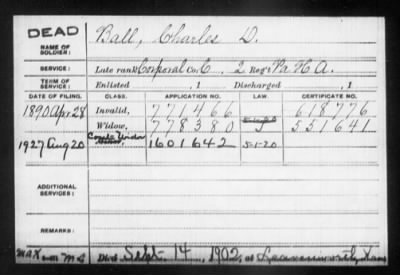 DEAD
NAME OF SOLDIER: Ball, Charles D.
SERVICE: Late rank Corporal Co. C, 2 Reg't Pa H A.
TERM OF SERVICE: Enlisted , 1 Discharged , 1
DATE OF FILING. CLASS. APPLICATION NO. LAW. CERTIFICATE NO.
1890 Apr 28 Invalid, 771466 618776
Widow, 778380 J 551641
1927 Aug 20 1601642 5-1-20
ADDITIONAL SERVICES:
REMARKS:
Died Sept 14, 1902, at Leavenworth, Kans